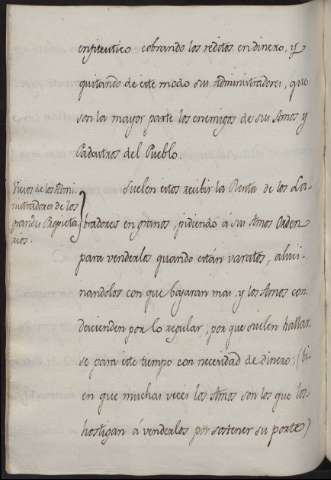 enfiteutico cobrando los reditos en dinero, y
quitando de este modo sus Administradores, que
son la mayor parte los enemigos de sus Amos y
Padrastros del Pueblo.
Vicios de los Admi-
nistradores de los
grandes Propieta-
rios.
Suelen estos recibir la Renta de los La-
bradores en granos, pidiendo á sus Amos Orden
para venderlos quando están varatos, aluci-
nandolos con que bajaran mas, y los Amos con-
descienden por lo regular, por que suelen hallar-
se para este tiempo con necesidad de dinero; (bi-
en que muchas veces los Amos son los que los
hostigan á venderlos por sostener su porte)